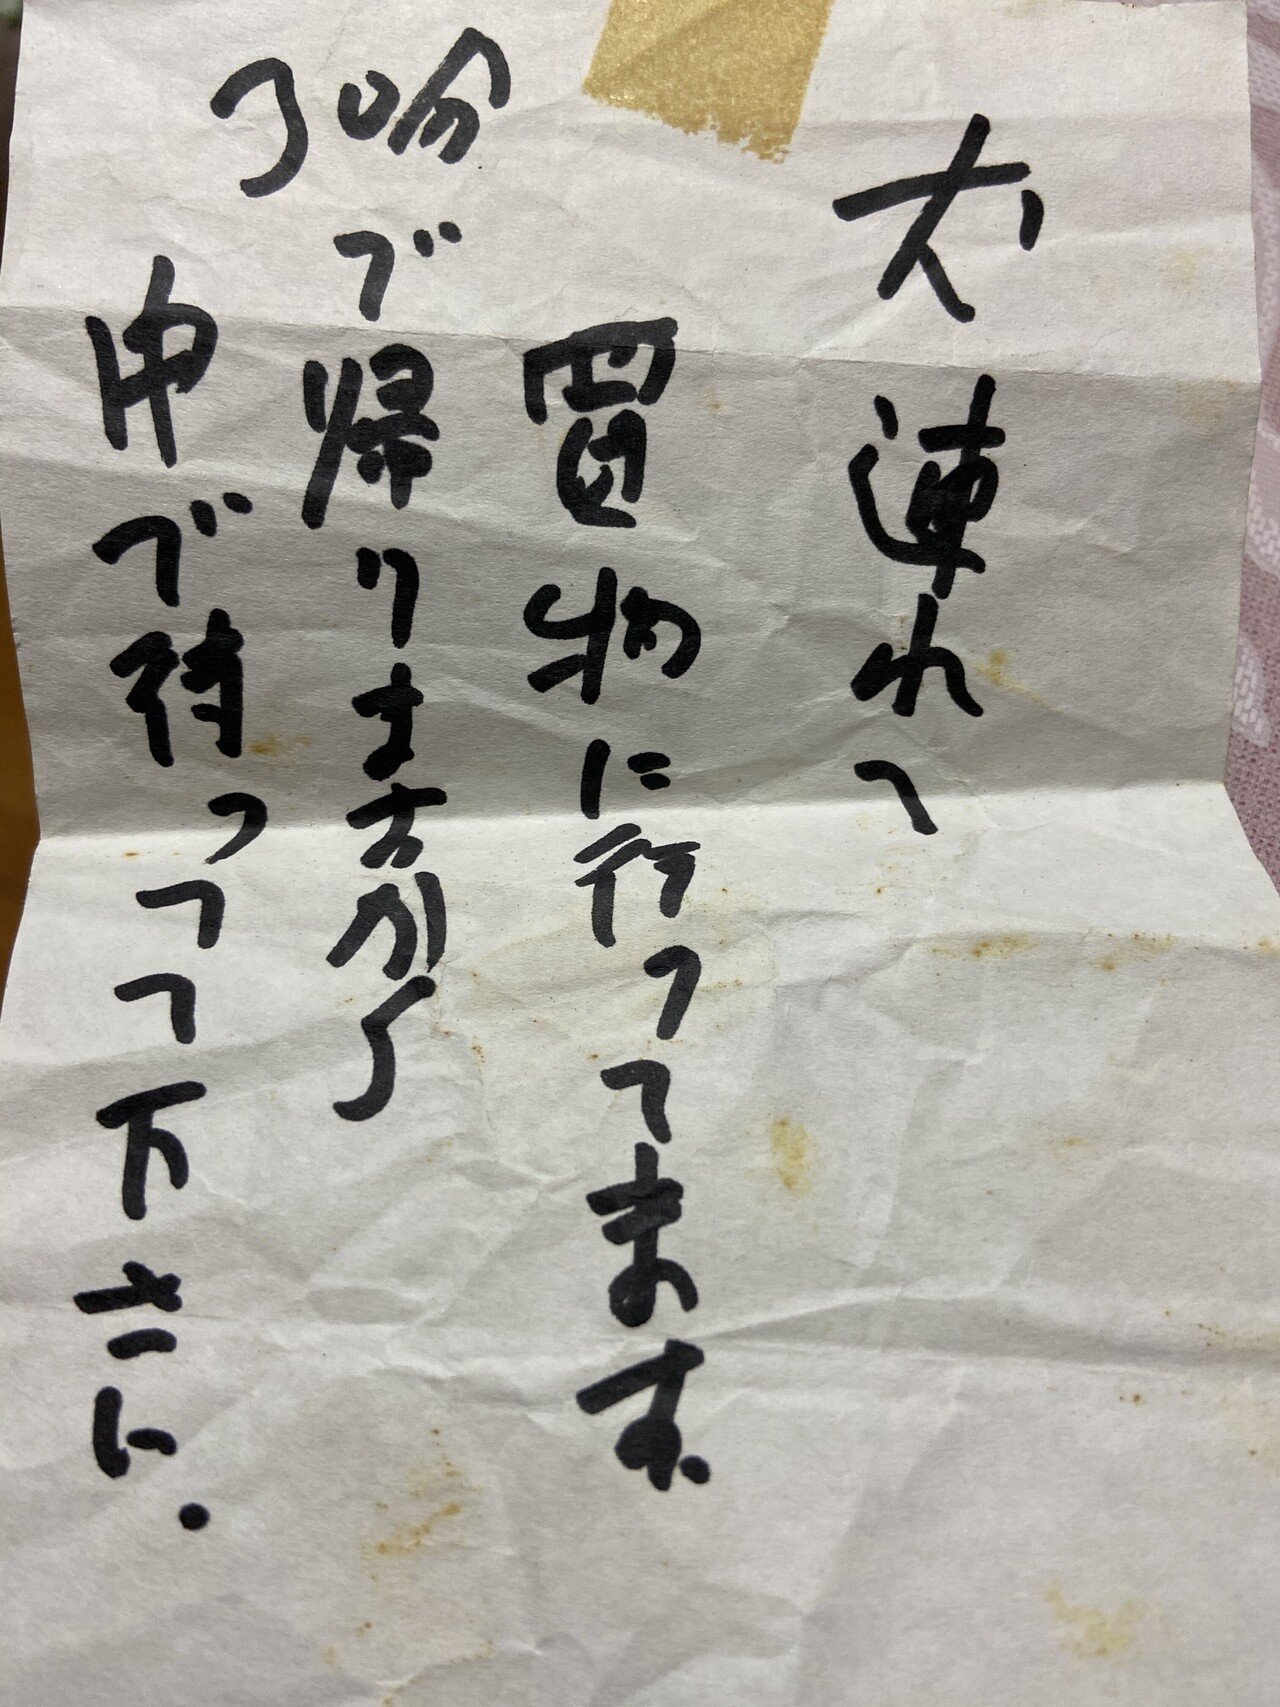 犬連れて
買物に行ってます.
30分で帰りますから
中で待ってて下さい.